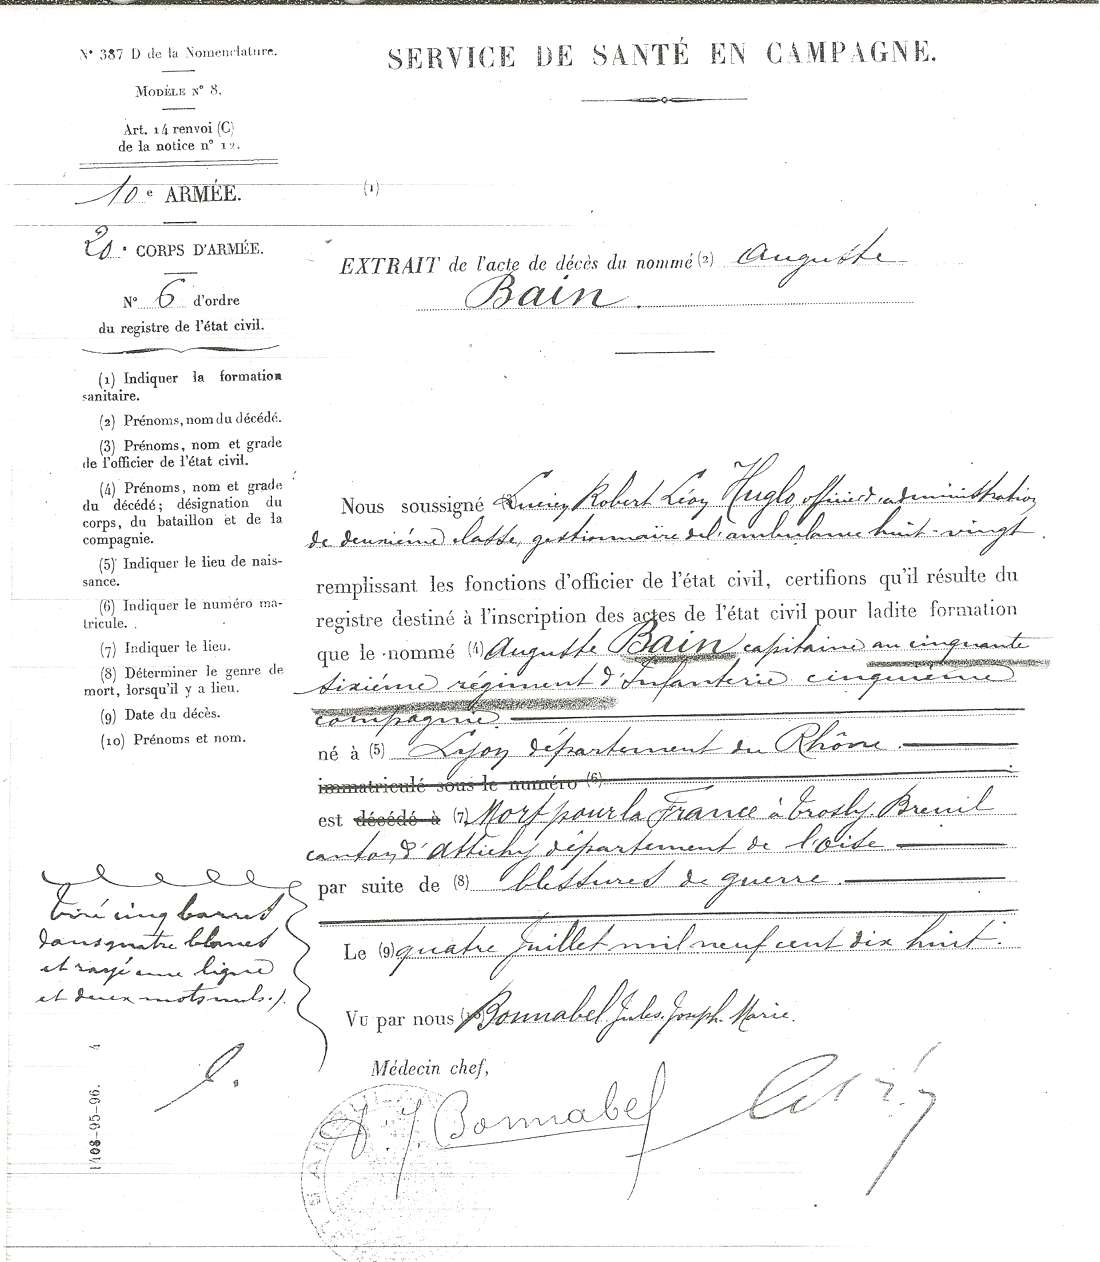 N° 387 D de la Nomenclature.
MODÈLE N° 8.
Art. 14 renvoi (C)
de la notice n° 12.
10 e ARMÉE.
20 e CORPS D'ARMÉE.
N° 6 d'ordre
du registre de l'état civil.
(1) Indiquer la formation
sanitaire.
(2) Prénoms, nom du décédé.
(3) Prénoms, nom et grade
de l'officier de l'état civil.
(4) Prénoms, nom et grade
du décédé; désignation du
corps, du bataillon et de la
compagnie.
(5) Indiquer le lieu de nais-
sance.
(6) Indiquer le numéro ma-
tricule.
(7) Indiquer le lieu.
(8) Déterminer le genre de
mort, lorsqu'il y a lieu.
(9) Date du décès.
(10) Prénoms et nom.
Tiré cinq barres
dans quatre blancs
et rayé une ligne
et deux mots nuls./.
1408-95-96. 4
SERVICE DE SANTÉ EN CAMPAGNE.
(1)
EXTRAIT de l'acte de décès du nommé (2) Auguste
Bain.
Nous soussigné Lucien Robert Léon Huglo, officier d'administration
de deuxième classe, gestionnaire de l'ambulance huit-vingt
remplissant les fonctions d'officier de l'état civil, certifions qu'il résulte du
registre destiné à l'inscription des actes de l'état civil pour ladite formation
que le nommé (4) Auguste Bain capitaine au cinquante
sixième régiment d'Infanterie cinquième
compagnie
né à (5) Lyon département du Rhône.
immatriculé sous le numéro (6)
est décédé à (7) Mort pour la France à Trosly Breuil
canton d'Attichy département de l'Oise
par suite de (8) blessures de guerre.
Le (9) quatre Juillet mil neuf cent dix huit.
Vu par nous (10) Bonnabel Jules. Joseph. Marie.
Médecin chef,
J. Bonnabel